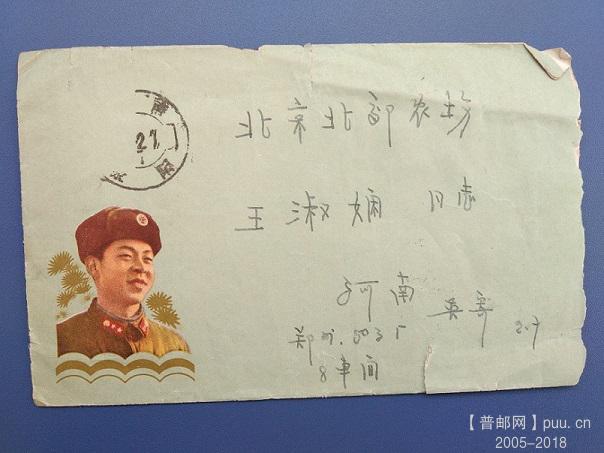 北京北郊农场
王淑娴 同志
河南
吴寄 2.7
郑州.503厂
8车间
27
【普邮网】puu.cn
2005-2018